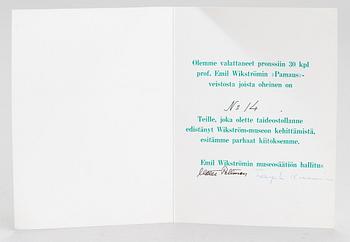 Olemme valattaneet pronssiin 30 kpl
prof. Emil Wikströmin »Pamaus»-
veistosta joista oheinen on
No 14
Teille, joka olette taideostollanne
edistänyt Wikström-museon kehittämistä,
esitämme parhaat kiitoksemme.
Emil Wikströmin museosäätiön hallitus